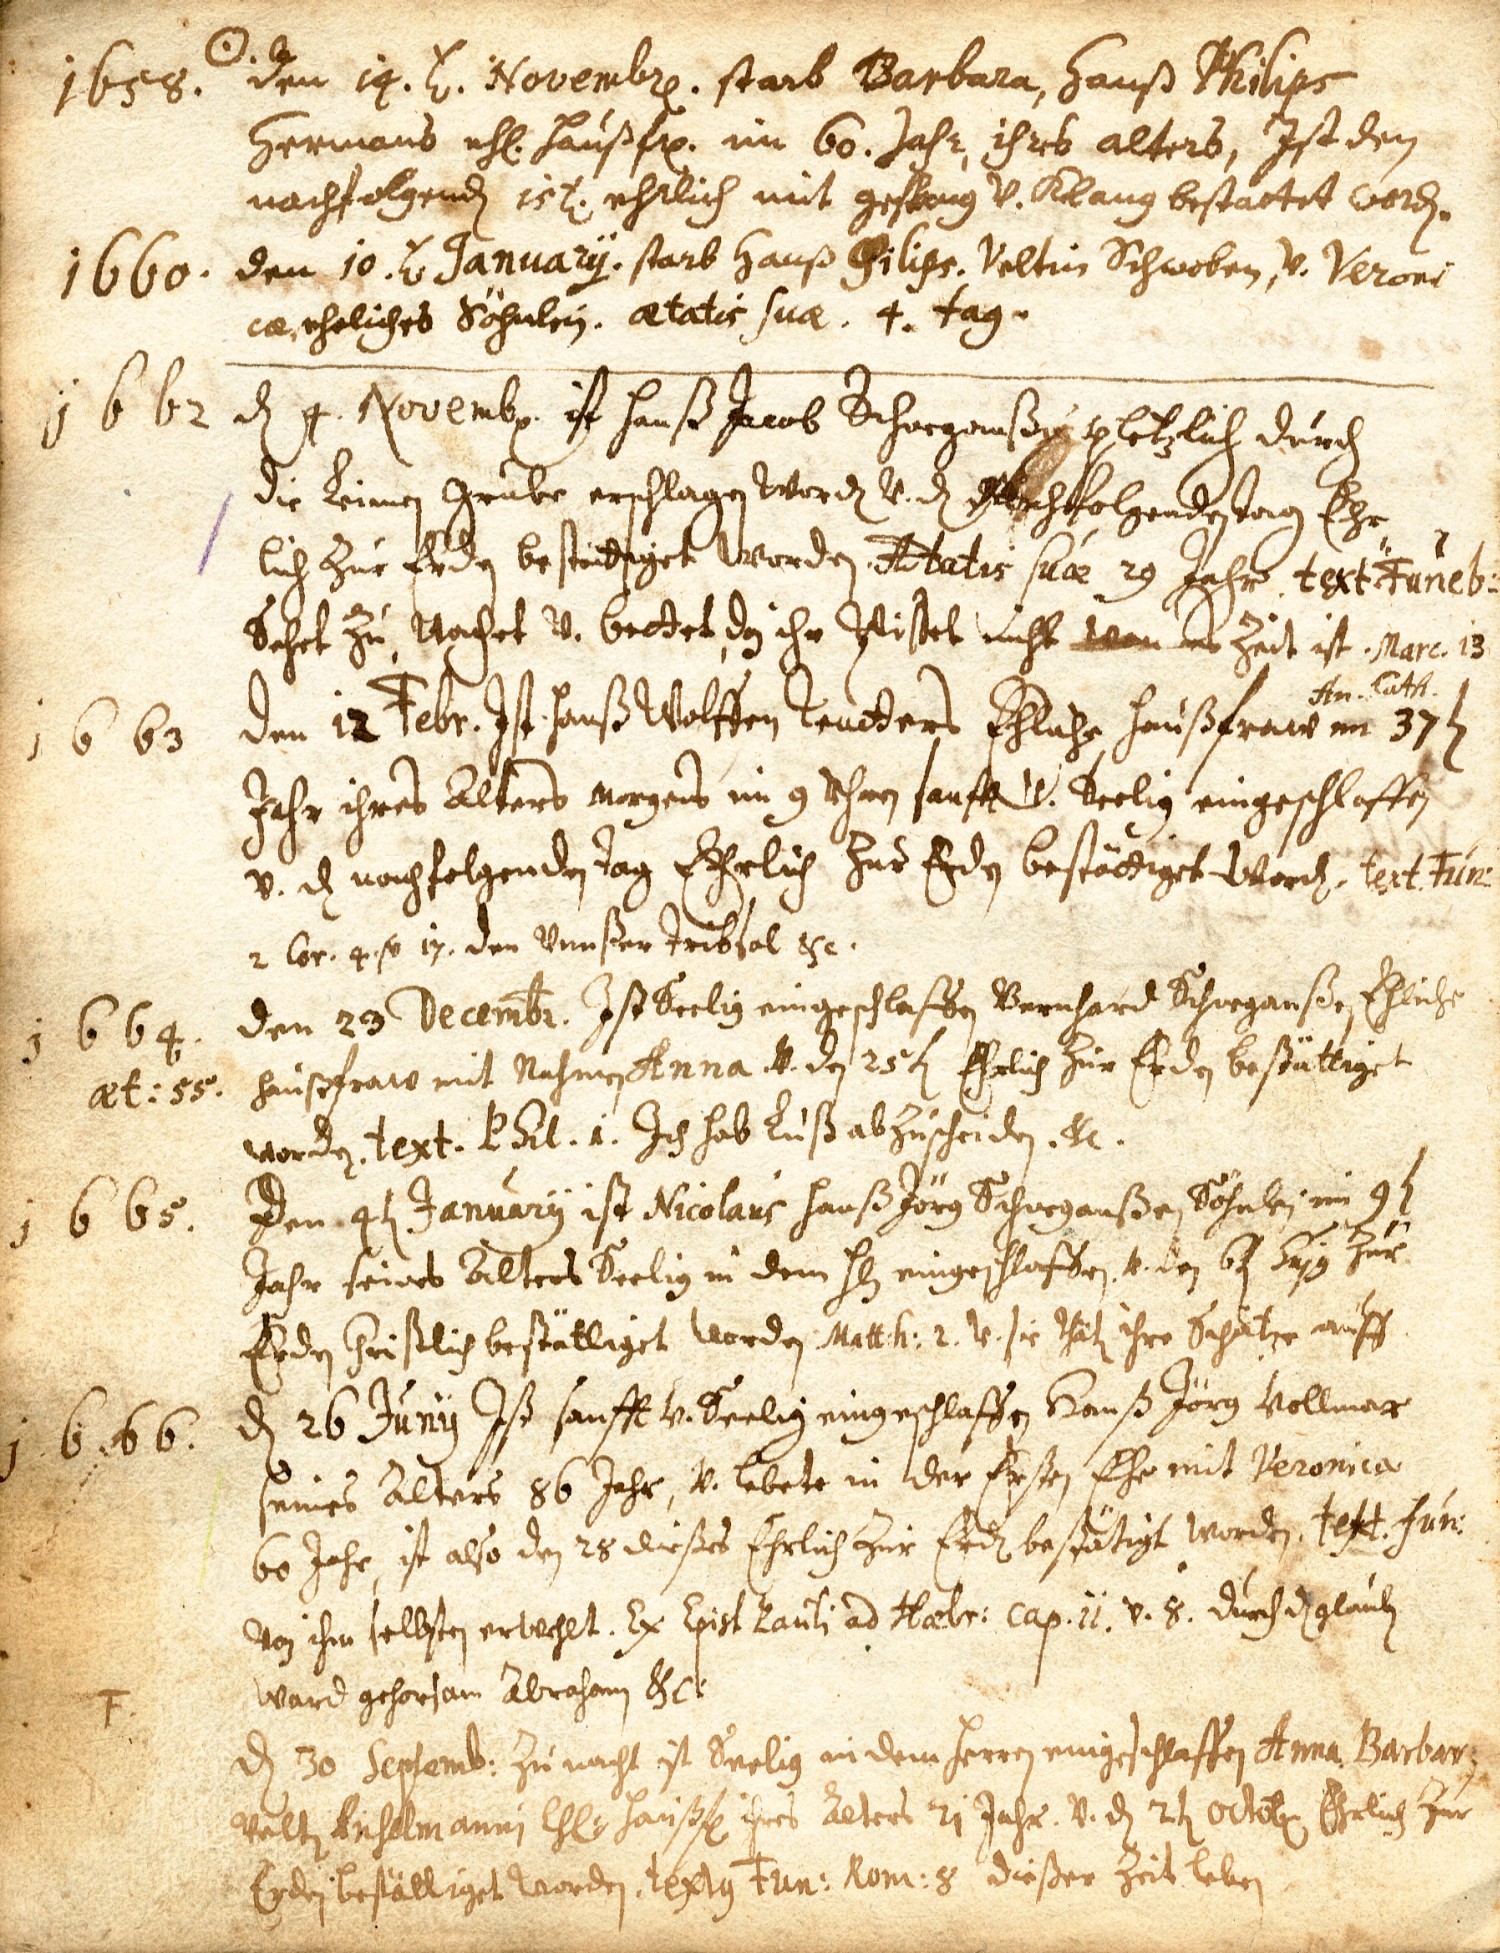 1658. ☉. den 14. t. Novembr. starb Barbara, Hanß Philips
Hermans ehl. Haußfr. im 60. Jahr, ihres alters, Ist den
nachfolgend 15 t. ehrlich mit gesang v. Klang bestattet word.
1660. den 10. t. January. starb Hanß Philips. Veltin Schwoben, v. Veroni
cæ, eheliches Söhnlein. ætatis suæ. 4. tag.
1662 d 4. Novembr. ist Hanß Jacob pletzlich durch
die Leimen Grube erschlagen word v. d nachfolgenden tag Ehr
lich Zur Erden bestättiget worden. Ætatis suæ 29 Jahr. text Funeb:
Sehet Zu, Wachet v. bettet, den ihr Wisset nicht wan es Zeit ist. Marc. 13
An. Cath.
1663 den 12 Febr. Ist Hanß Wolffen Ehliche Haußfraw im 37t
Jahr ihres Alters Morgens im 9 Uhren sanfft v. Seelig eingeschlaffen
v. d nachfolgenden tag Ehrlich Zur Erden bestättiget Word. text. Fun:
2 Cor. 4. v 17. den Vnnßer Tribsal &c.
1664. den 23 Decembr. Ist Seelig eingeschlaffen Bernhard Ehliche
æt: 55. Haußfraw mit Nahmen Anna v. den 25t Ehrlich Zur Erden bestättiget
worden. text. Phil. 1. Ich hab Lust abzuscheiden. &c.
1665. Den 4t January ist Nicolaus Hanß Jörg Söhnlein im 9t
Jahr seines Alters Seelig in dem Hn eingeschlaffen. v. den 6t Zur
Erden Christlich bestättiget worden Matth: 2. v. sie ihre Schätze auff
1666. d 26 Juny Ist sanfft v. Seelig eingeschlaffen Hanß Jörg Vollmar
seines Alters 86 Jahr, v. lebete in der Ersten Ehe mit Veronica
60 Jahr, ist also den 28 dießes Ehrlich Zur Erd bestätigt worden. text. fun:
von ihm selbsten erwehlt. Ex Epist Pauli ad Hæbr: cap. 11. v. 8. durch d glauben
ward gehorsam Abraham &c:
F. d 30 Septemb: Zu nacht ist Seelig in dem Herren eingeschlaffen Anna Barbar:
Velt Anshelmanni Ehl. Haußfr ihres Alters 21 Jahr. v. d 2t Octobr Ehrlich Zur
Erden bestättiget worden. Fun: Rom: 8 dießer Zeit leben